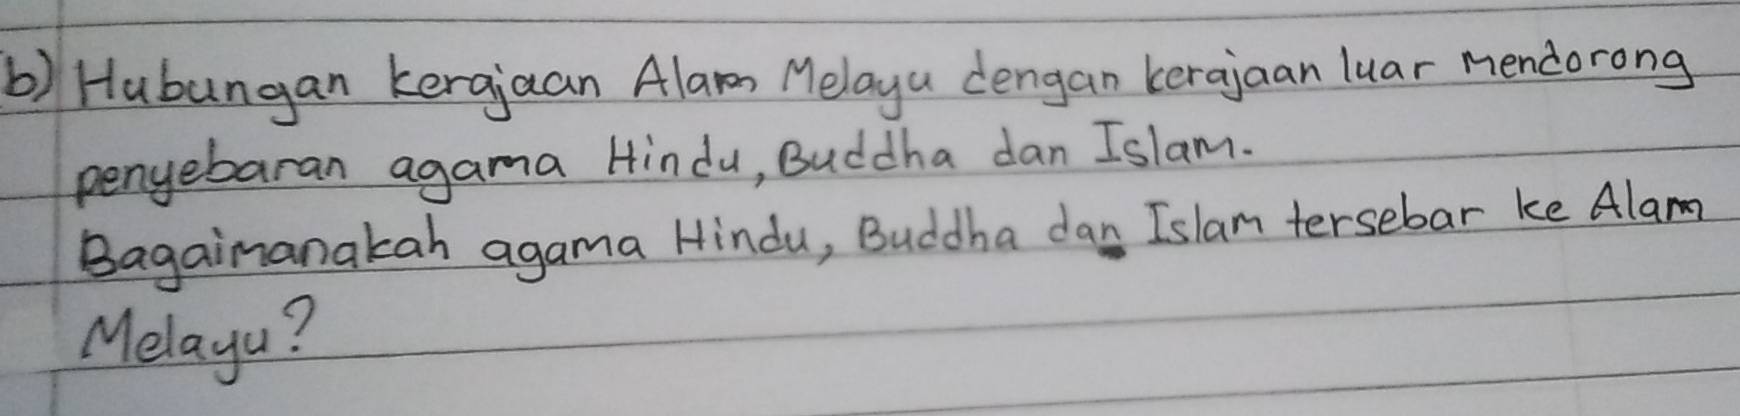 b) Hubungan kerajaan Alam Melayu dengan kerajaan luar mendorong
penyebaran agama Hindu, Buddha dan Islam.
Bagaimanakah agama Hindu, Buddha dan Islam tersebar ke Alam
Melayu?